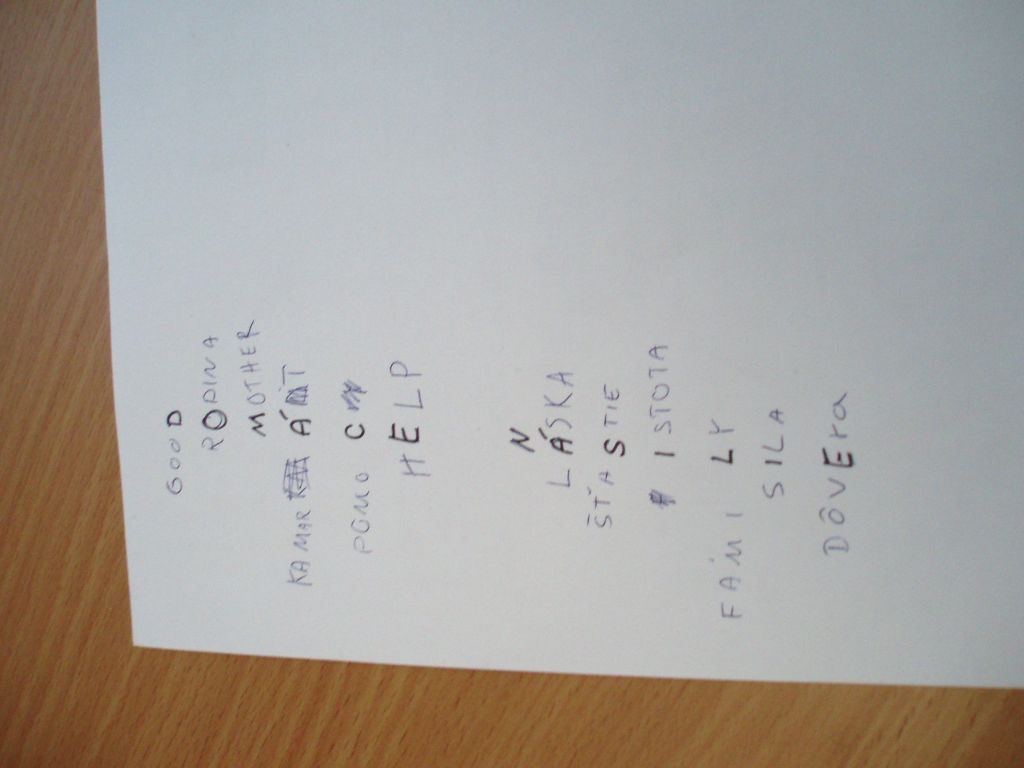 GOOD
RODINA
MOTHER
KAMARÁT
POMOC
HELP
N
LÁSKA
ŠŤASTIE
ISTOTA
FAMILY
SILA
DÔVEra